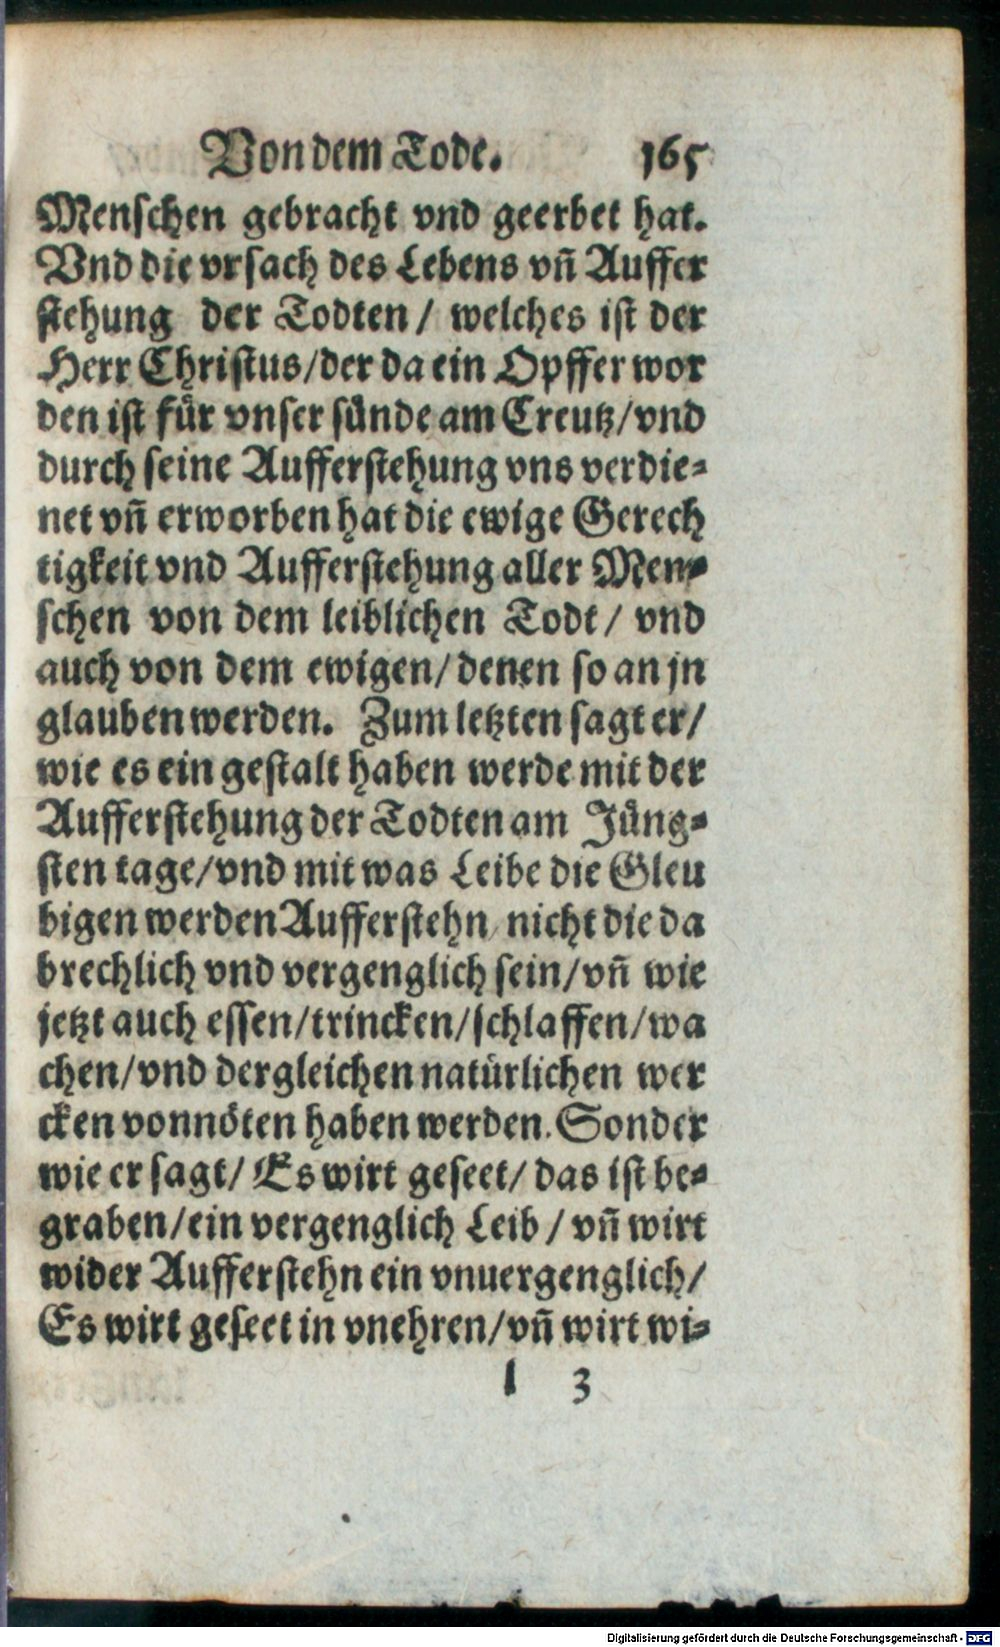 Von dem Tode. 165
Menschen gebracht vnd geerbet hat.
Vnd die vrsach des Lebens vn̄ Auffer
stehung der Todten / welches ist der
Herr Christus / der da ein Opffer wor
den ist für vnser sünde am Creutz / vnd
durch seine Aufferstehung vns verdie-
net vn̄ erworben hat die ewige Gerech
tigkeit vnd Aufferstehung aller Men-
schen von dem leiblichen Todt / vnd
auch von dem ewigen / denen so an jn
glauben werden. Zum letzten sagt er /
wie es ein gestalt haben werde mit der
Aufferstehung der Todten am Jüng-
sten tage / vnd mit was Leibe die Gleu
bigen werden Aufferstehn / nicht die da
brechlich vnd vergenglich sein / vn̄ wie
jetzt auch essen / trincken / schlaffen / wa
chen / vnd dergleichen natürlichen wer
cken vonnöten haben werden. Sonder
wie er sagt / Es wirt geseet / das ist be-
graben / ein vergenglich Leib / vn̄ wirt
wider Aufferstehn ein vnuergenglich /
Es wirt geseet in vnehren / vn̄ wirt wi-
l 3
Digitalisierung gefördert durch die Deutsche Forschungsgemeinschaft - DFG